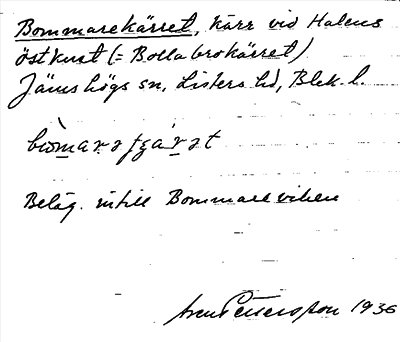 Bommarekärret, kärr vid Halens
östkust (= Bollabrokärret)
Jämshögs sn, Listers hd, Blek. l.
Beläg. intill Bommareviken
Pettersson 1936